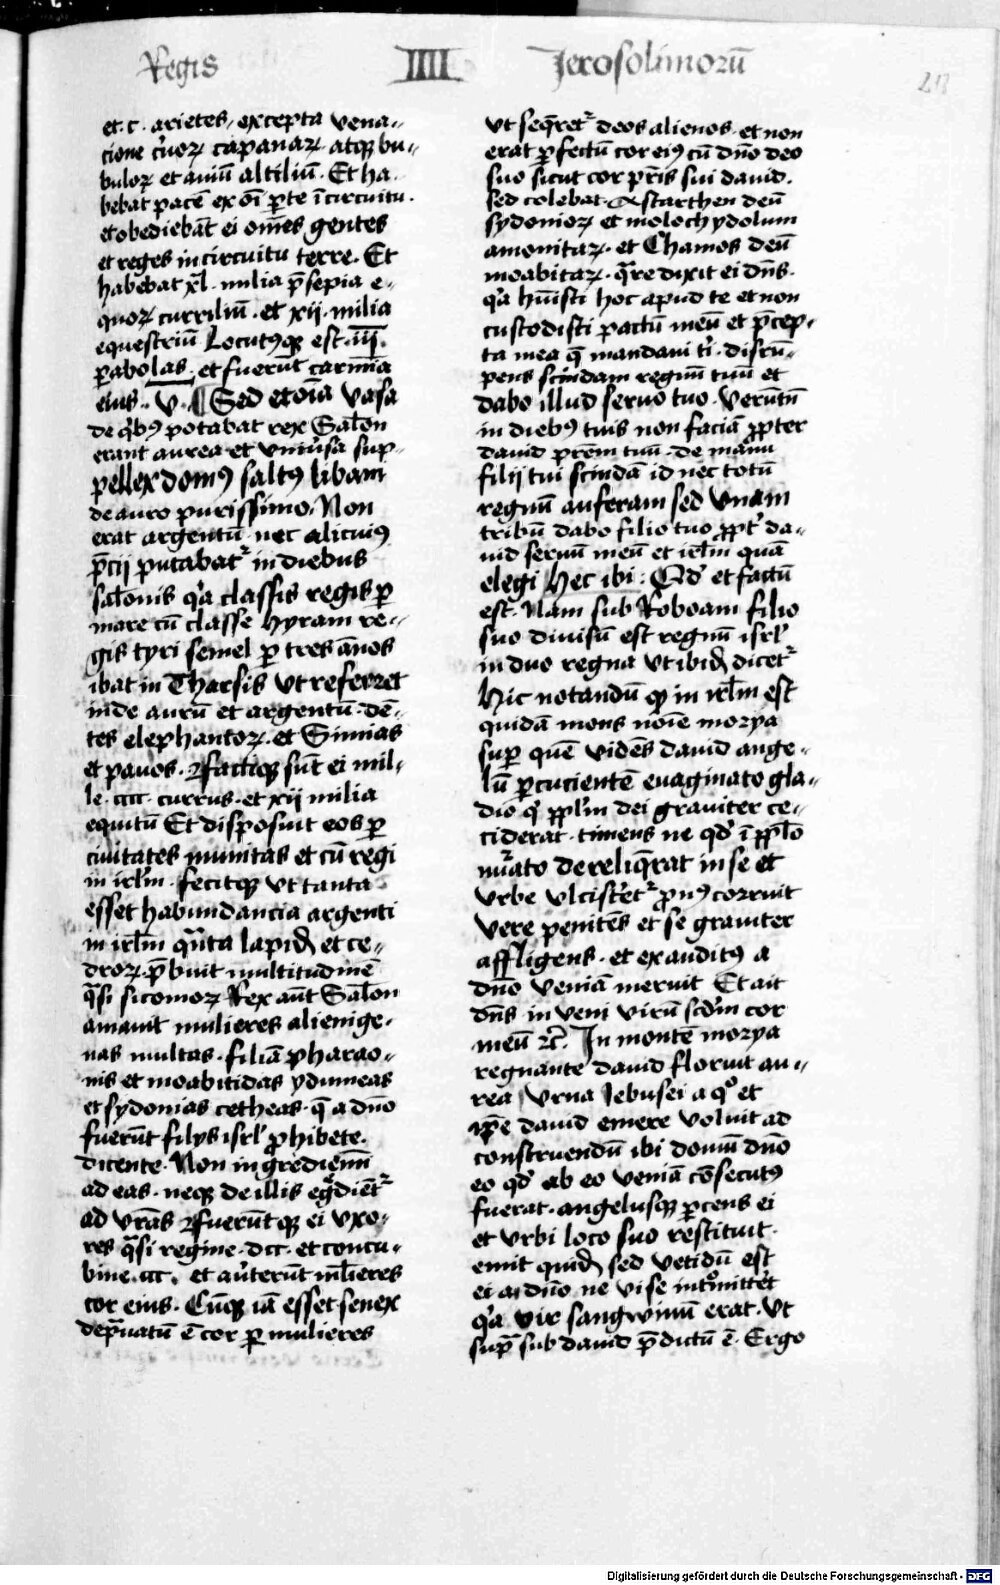 Regis IIII Jerosolimorū
213
et · c · arietes, excepta vena-
cione c̓uoꝝ capanaꝝ · atqꝫ bu-
buloꝝ et auiū altiliū · Et ha-
bebat pacē ex oī ꝑte ī circuitu ·
et obediebāt ei om̄es gentes
et reges in circuitu terre · Et
habebat xl · milia p̄sepia e-
quoꝝ curriliū · et xij · milia
equestriū Locutꝰqꝫ est · iij ·
ꝑabolas · et fuerūt carmīa
eius · v · ¶ Sed et oīa vasa
de qͥbꝰ potabat rex Salōn
erant aurea et vniu̓sa sup-
pellex domꝰ saltꝰ libani
de auro purissimo · Non
erat argentū · nec alicuiꝰ
p̄cij putabatᷣ in diebus
salōnis qͥa classis regis ꝑ
mare cū classe hyram re-
gis tyri semel ꝑ tres ānos
ibat in Tharsis vt referret
inde aurū et argentū · dē-
tes elephantoꝝ · et Simias
et pauos · Factiqꝫ sūt ei mil-
le · cccc · currus · et xij milia
equitū Et disposuit eos ꝑ
ciuitates munitas et cū regi
in irl̄m · fecitqꝫ vt tanta
esset habundancia argenti
in irl̄m qͣnta lapidꝭ et ce-
droꝝ · p̄buit multitudinē
qͣsi sicomoꝝ Rex aūt Salōn
amauit mulieres alienige-
nas multas · filiā pharao-
nis et moabitidas ydumeas
et sydonias cetheas · q̄ a dn̄o
fuerūt filijs isrl̓ ꝓhibete ·
dicente · Non ingrediemī
ad eas · neqꝫ de illis egͣdiētᷣ
ad vr̄as · Fuerūtqꝫ ei vxo-
res qͣsi regine · dcc · et concu-
bine · ccc · et au̓terūt ml̄ieres
cor eius · Cūqꝫ iā esset senex
depͣuatū ē cor ꝑ mulieres
vt seqͥretᷣ deos alienos · et non
erat ꝑfectū cor eiꝰ cū dn̄o deo
suo sicut cor pr̄is sui dauid ·
sed colebat · Astarthen deū
sydonioꝝ et moloch ydolum
amonitaꝝ · et Chamos deū
moabitaꝝ · qͣre dixit ei dn̄s ·
qͥa huīsti hoc apud te et non
custodisti pactū meū et p̄cep-
ta mea q̄ mandaui ti · disrū-
pens scindam regnū tuū et
dabo illud seruo tuo · Verūtn̄
in diebꝰ tuis non faciā ꝓpter
dauid pr̄em tuū · de manu
filij tui scindā id nec totū
regnū auferam sed vnam
tribū dabo filio tuo ꝓpt̓ da-
uid seruū meū et irl̄m quā
elegi Hec ibi · Qd̓ et factū
est · Nam sub Roboam filio
suo diuisū est regnū isrl̓
in duo regna vt ibidꝭ dicetᷣ
Hic notandū qꝫ in irl̄m est
quidā mons noīe morya
super quē vidēs dauid ange-
lū ꝑcucientē euaginato gla-
dio qͥ ppl̄m dei grauiter ce-
ciderat · timens ne qd̓ ī ppl̄o
nu̓ato dereliqͥrat in se et
vrbe vlcisc̓etᷣ ꝓnꝰ corruit
vere penitēs et se grauiter
affligens · et exauditꝰ a
dn̄o veniā meruit Et ait
dn̄s · in veni virū scd̓m cor
meū ⁊c̄ · In monte morya
regnante dauid floruit au-
rea vrna Jebusei a qͦ et
ip̄e dauid emere voluit ad
construendū ibi domū dn̄o
eo qd̓ ab eo veniā cōsecutꝰ
fuerat · angelusqꝫ ꝑcens ei
et vrbi loco suo restituit ·
emit quidꝭ sed vetidū est
ei a dn̄o ne vi se intͦmitt̓et
qͥa vir sangwinū erat · vt
supͣ sub dauid p̄dictū ē · Ergo
Digitalisierung gefördert durch die Deutsche Forschungsgemeinschaft - DFG